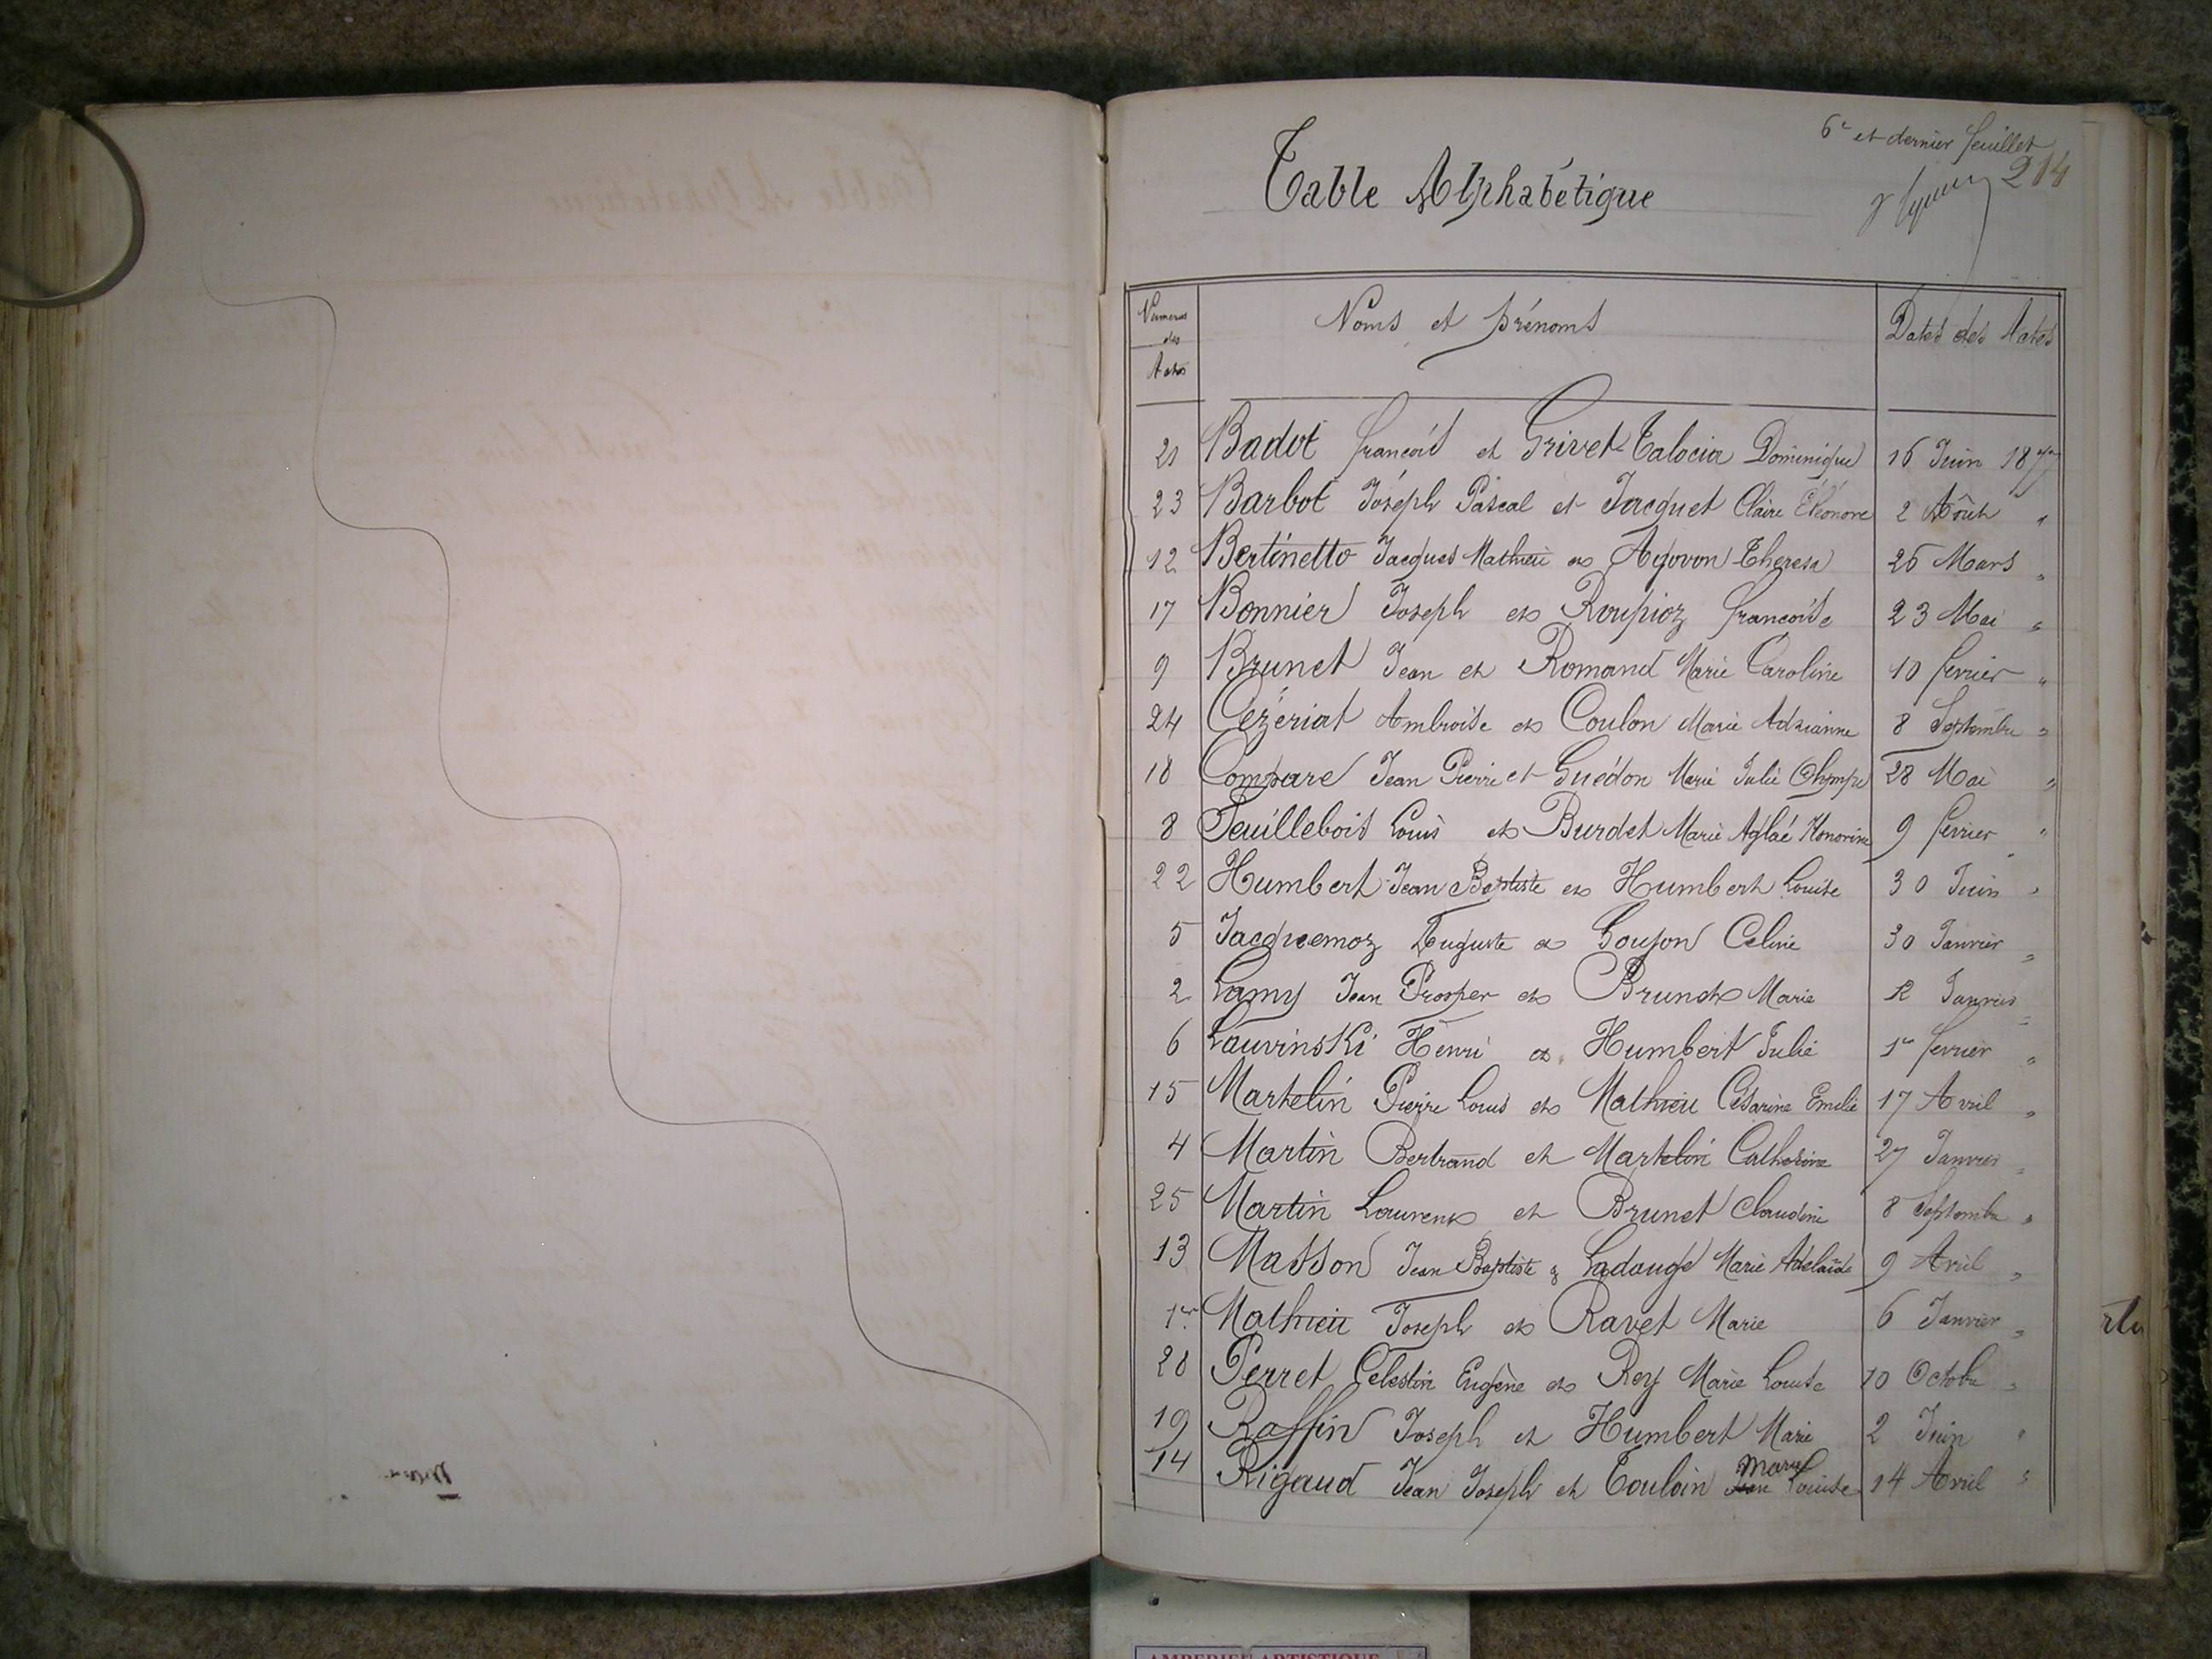 6e et dernier feuillet
214
Table Alphabétique
Numeros des Actes Noms et prénoms Dates des Actes
21 Badot francois et Grivet-Talocia Dominique 16 Juin 1877
23 Barbot Joseph Pascal et Jacquet Claire Éléonore 2 Août "
12 Bertinetto Jacques Mathieu et Agovon Theresa 26 Mars "
17 Bonnier Joseph et Roupioz francoise 23 Mai "
9 Brunet Jean et Romand Marie Caroline 10 fevrier "
24 Cézériat Ambroise et Coulon Marie Adrianne 8 Septembre "
18 Compare Jean Pierre et Guédon Marie Julie Olympe 28 Mai "
8 Feuillebois Louis et Burdet Marie Aglaé Honorine 9 fevrier "
22 Humbert Jean Baptiste et Humbert Louise 30 Juin "
5 Jacquemoz Auguste et Goujon Celine 30 Janvier "
2 Lamy Jean Prosper et Brunet Marie 12 Janvier "
6 Lauvinski Henri et Humbert Julie 1er fevrier "
15 Martelin Pierre Louis et Mathieu Césarine Emélie 17 Avril "
4 Martin Bertrand et Martelin Catherine 27 Janvier "
25 Martin Laurent et Brunet Claudine 8 Septembre "
13 Masson Jean Baptiste & Ladouge Marie Adelaïde 9 Avril "
1er Mathieu Joseph et Ravet Marie 6 Janvier "
28 Perret Célestin Eugène et Rey Marie Louise 10 Octobre "
19 Raffin Joseph et Humbert Marie 2 Juin "
14 Rigaud Jean Joseph et Touloin Marie Louise 14 Avril "
AMBERIEU ARTISTIQUE